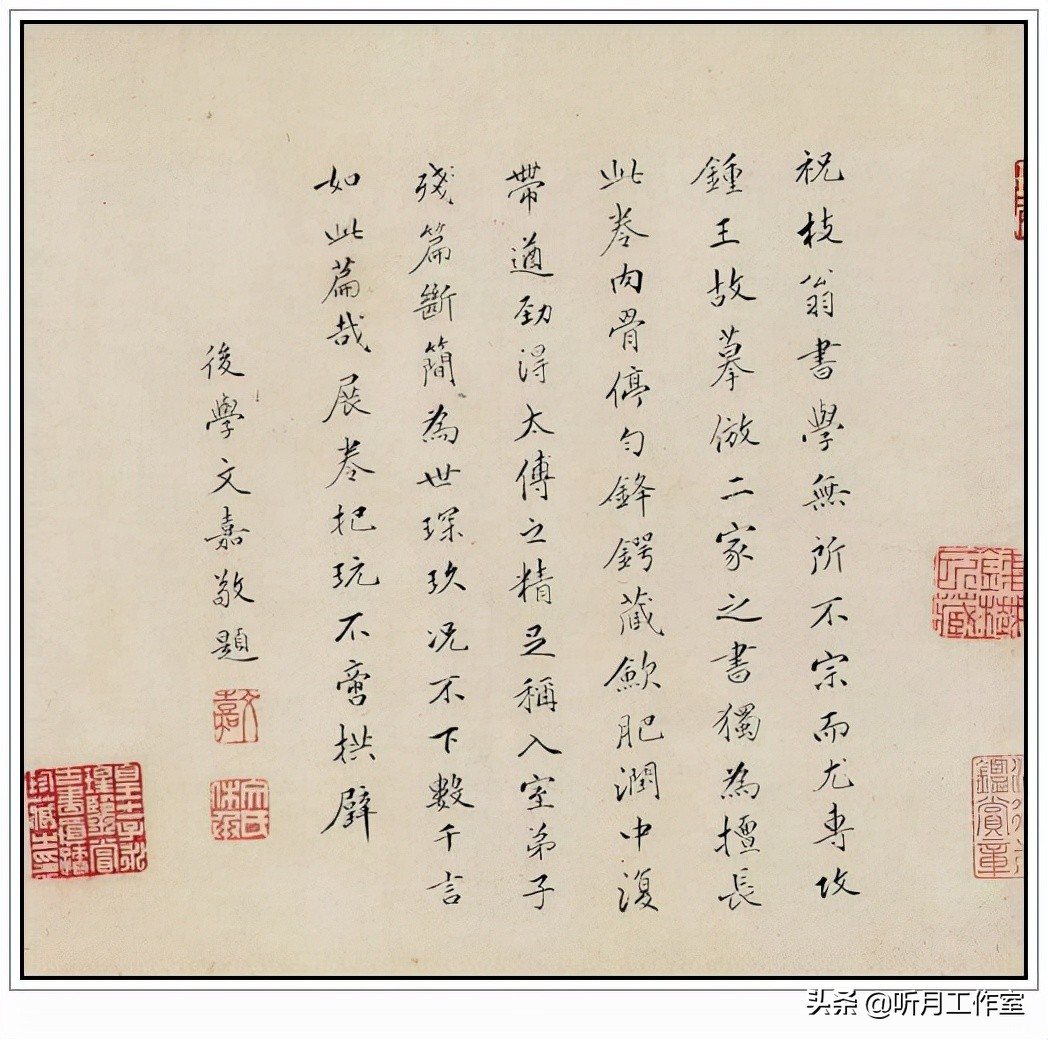 祝枝翁書學無所不宗而尤專攻
鍾王故摹倣二家之書獨為擅長
此卷肉骨停勻鋒鍔藏歛肥潤中復
帶遒勁得太傅之精足稱入室弟子
殘篇斷簡為世琛玖况不下數千言
如此篇哉展卷把玩不啻拱璧
後學文嘉敬題
文嘉
文氏休承
鑑賞章
头条 @听月工作室